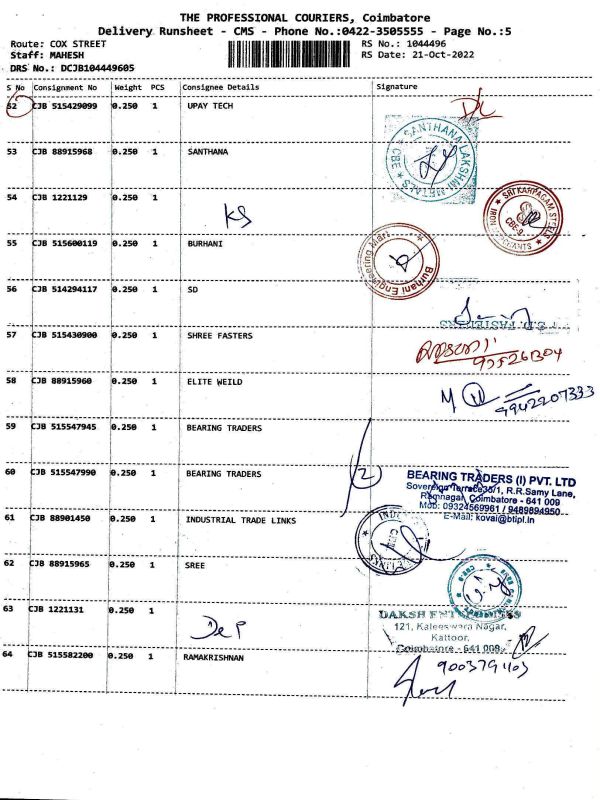 THE PROFESSIONAL COURIERS, Coimbatore
Delivery Runsheet - CMS - Phone No.:0422-3505555 - Page No.:5
Route: COX STREET
RS No.: 1044496
Staff: MAHESH
RS Date: 21-Oct-2022
DRS No.: DCJB104449605
S No Consignment No Weight PCS Consignee Details Signature
52 CJB 515429099 0.250 1 UPAY TECH
SANTHANA LAKSHMI METALS ★ CBE ★
53 CJB 88915968 0.250 1 SANTHANA
54 CJB 1221129 0.250 1
KS
SRI KARPAGAM STEELS
CBE-9
55 CJB 515600119 0.250 1 BURHANI
Burhani Engineering Mart
56 CJB 514294117 0.250 1 SD
57 CJB 515430900 0.250 1 SHREE FASTERS
58 CJB 88915960 0.250 1 ELITE WEILD
9942207333
59 CJB 515547945 0.250 1 BEARING TRADERS
60 CJB 515547990 0.250 1 BEARING TRADERS
2
BEARING TRADERS (I) PVT. LTD
Sovereign Terrace
R.R.Samy Lane,
Ramnagar, Coimbatore - 641 009
Mob: 09324569961 / 9489894950
E-Mail: kovai@btipl.in
61 CJB 88901450 0.250 1 INDUSTRIAL TRADE LINKS
62 CJB 88915965 0.250 1 SREE
63 CJB 1221131 0.250 1
DeP
DAKSH ENTERPRISES
121, Kaleeswara Nagar,
Kattoor,
Coimbatore - 641 009
64 CJB 515582200 0.250 1 RAMAKRISHNAN